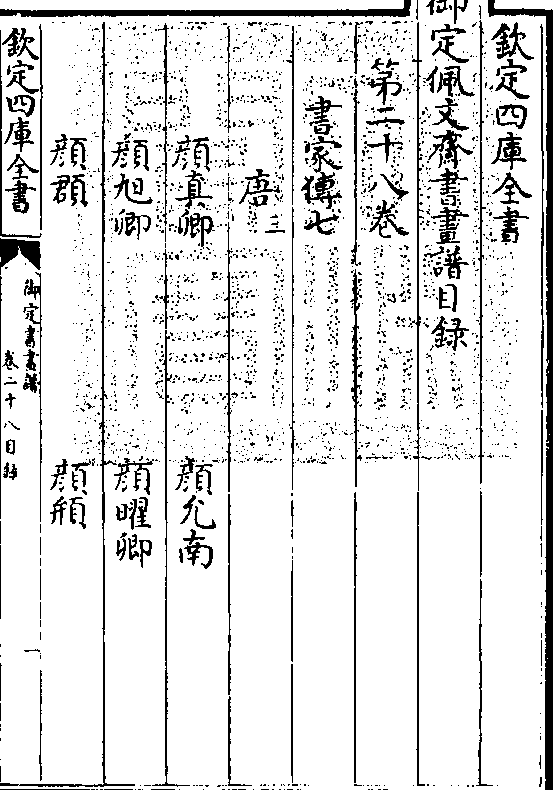 欽定四庫全書
御定佩文齋書畫譜目録
第二十八卷
書家傳七
唐三
顔真卿 顔允南
顔旭卿 顔曜卿
顔羣 顔頵
欽定四庫全書
御定書畫譜
卷二十八目録
一